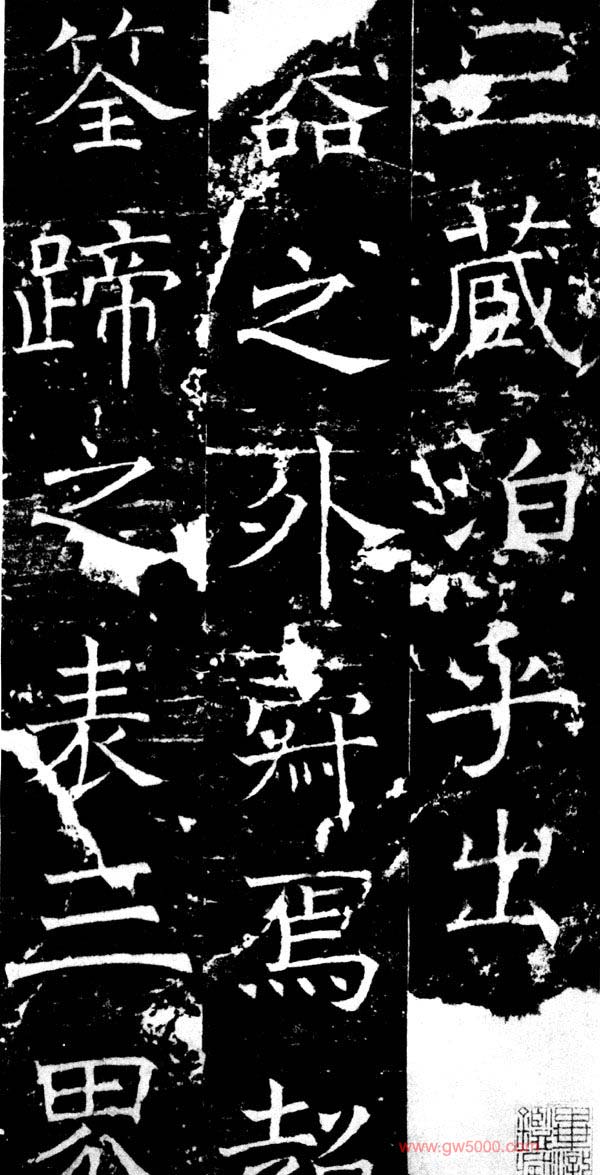 三藏泊乎出
器之外寥焉超
筌蹄之表三界
www.gw5000.com